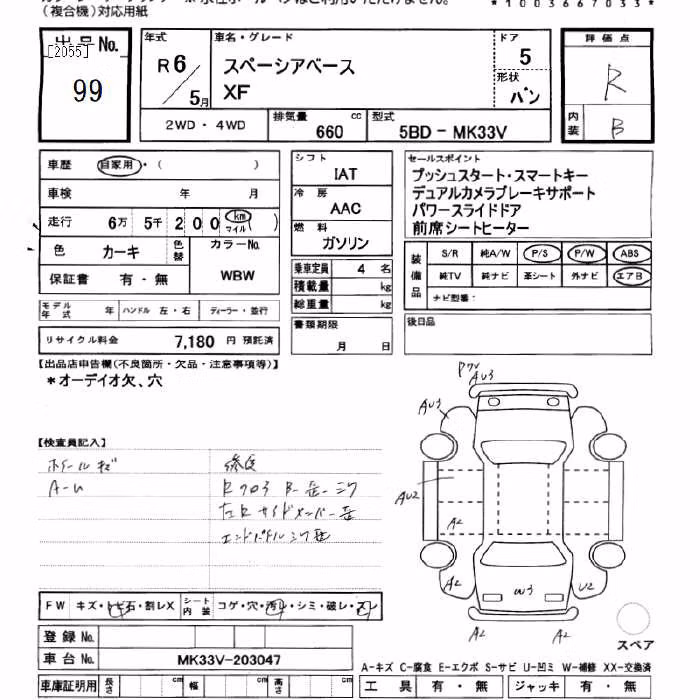 （複合機）対応用紙
*1003667033*
出品No.
[2055]
99
年式
R 6
5月
車名・グレード
スペーシアベース
XF
ドア
5
形状
バン
評価点
R
内装
B
2WD・4WD
排気量 cc
660
型式
5BD－MK33V
車歴 自家用・（ ）
車検 年 月
走行 6万 5千 200 km マイル
色 カーキ 色替
カラーNo.
WBW
保証書 有・無
モデル年式 年 ハンドル 左・右 ディーラー・並行
リサイクル料金 7,180 円 預託済
シフト
IAT
冷房
AAC
燃料
ガソリン
乗車定員 4 名
積載量 kg
総重量 kg
書類期限
月 日
セールスポイント
プッシュスタート・スマートキー
デュアルカメラブレーキサポート
パワースライドドア
前席シートヒーター
装備品
S/R 純A/W P/S P/W ABS
純TV 純ナビ 革シート 外ナビ エアB
ナビ型番：
後日品
【出品店申告欄(不良箇所・欠品・注意事項等)】
＊オーデイオ欠、穴
【検査員記入】
ホイールキズ
A-U
修復
エンドパネル
AU3
AU3
AU2
A2
A2
A2
U2
W3
A2
A2
FW キズ・トビ石・割レX
シート内装 コゲ・穴・汚レ・シミ・破レ・スレ
登録No.
車台No. MK33V-203047
車庫証明用 長さ cm 幅 cm 高さ cm
スペア
A－キズ C－腐食 E－エクボ S－サビ U－凹ミ W－補修 XX－交換済
工具 有・無 ジャッキ 有・無